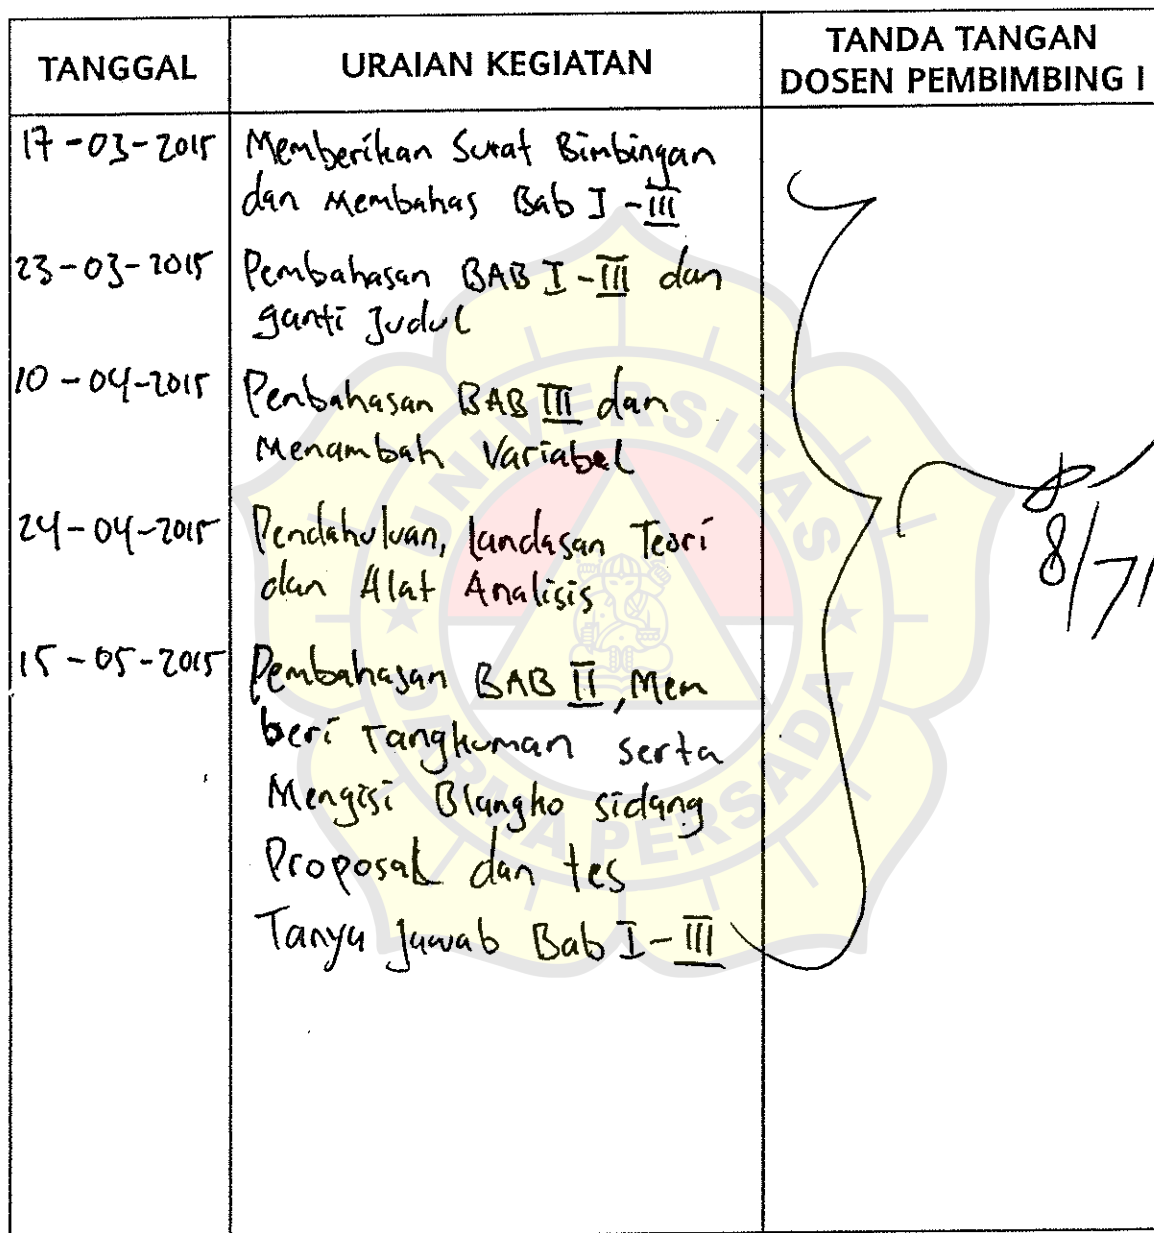 TANGGAL URAIAN KEGIATAN TANDA TANGAN
DOSEN PEMBIMBING I
17-03-2015 Memberikan Surat Bimbingan
dan Membahas Bab I - III
23-03-2015 Pembahasan BAB I - III dan
ganti Judul
10-04-2015 Penbahasan BAB III dan
Menambah Variabel
24-04-2015 Pendahuluan, Landasan Teori
dan Alat Analisis
15-05-2015 Pembahasan BAB II, Mem
beri rangkuman serta
Mengisi Blangko sidang
Proposal dan tes
Tanya Jawab Bab I - III
8/7/
UNIVERSITAS
DARMA PERSADA